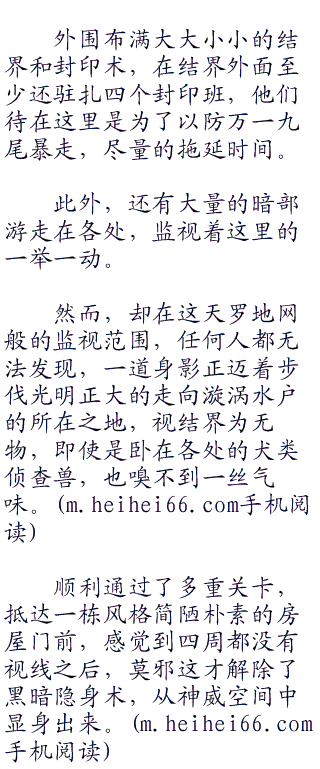 外围布满大大小小的结
界和封印术，在结界外面至
少还驻扎四个封印班，他们
待在这里是为了以防万一九
尾暴走，尽量的拖延时间。
此外，还有大量的暗部
游走在各处，监视着这里的
一举一动。
然而，却在这天罗地网
般的监视范围，任何人都无
法发现，一道身影正迈着步
伐光明正大的走向漩涡水户
的所在之地，视结界为无
物，即使是卧在各处的犬类
侦查兽，也嗅不到一丝气
味。(m.heihei66.com手机阅
读)
顺利通过了多重关卡，
抵达一栋风格简陋朴素的房
屋门前，感觉到四周都没有
视线之后，莫邪这才解除了
黑暗隐身术，从神威空间中
显身出来。(m.heihei66.com
手机阅读)